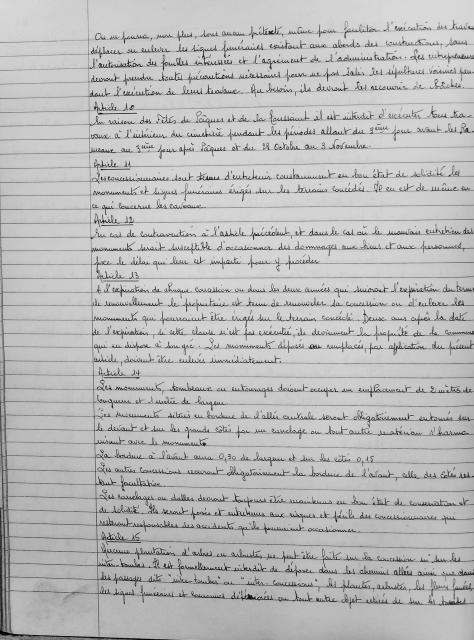 On ne pourra, non plus, sous aucun prétexte, même pour faciliter l'exécution des travaux
déplacer ou enlever les signes funéraires existant aux abords des constructions, sans
l'autorisation des familles intéressées et l'agrément de l'administration. Les entrepreneurs
devront prendre toutes précautions nécessaires pour ne pas salir les sépultures voisines pen
dant l'exécution de leurs travaux. Au besoin, ils devront les recouvrir de bâches.
Article 10
En raison des Fêtes de Pâques et de la Toussaint il est interdit d'exécuter tous tra-
vaux à l'intérieur du cimetière pendant les périodes allant du jour avant les Ra
meaux au 3ème jour après Pâques et du 28 Octobre au 3 Novembre.
Article 11
Les concessionnaires sont tenus d'entretenir constamment en bon état de solidité les
monuments et signes funéraires érigés sur les terrains concédés. Il en est de même en
ce qui concerne les caveaux.
Article 12
En cas de contravention à l'article précédent, et dans le cas où le mauvais entretien des
monuments serait susceptible d'occasionner des dommages aux biens et aux personnes,
fixe le délai qui leur est imparti pour y procéder
Article 13
A l'expiration de chaque concession ou dans les deux années qui suivront l'expiration du terme
de renouvellement le propriétaire est tenu de renouveler sa concession ou d'enlever les
monuments qui pourraient être érigés sur le terrain concédé. Deux ans après la date
de l'expiration, si cette clause n'est pas exécutée, ils deviennent la propriété de la commune
qui en dispose à son gré. Les monuments déposés ou remplacés, par application du présent
article, doivent être enlevés immédiatement.
Article 14
Les monuments, tombeaux ou entourages doivent occuper un emplacement de 2 mètres de
longueur et 1 mètre de largeur
Les monuments situés en bordure de l'allée centrale seront obligatoirement entourés sur
le devant et sur les grands côtés par un carrelage ou tout autre matériau s'harmo
nisant avec le monument
La bordure à l'avant aura 0,30 de largeur et sur les côtés 0,15
Les autres concessions recevront obligatoirement la bordure de l'avant, celle des côtés res-
tant facultative.
Les carrelages ou dalles devront toujours être maintenus en bon état de conservation et
de solidité. Ils seront posés et entretenus aux risques et périls des concessionnaires qui
resteront responsables des accidents qu'ils peuvent occasionner.
Article 15
Aucune plantation d'arbres ou arbustes ne peut être faite sur la concession ni sur les
inter-tombes. Il est formellement interdit de déposer dans les chemins allées ainsi que dans
les passages dits "inter-tombes" ou "inter-concessions", les plantes, arbustes, les fleurs fanées
les signes funéraires et couronnes détériorées ou tout autre objet retirés de sur les tombes